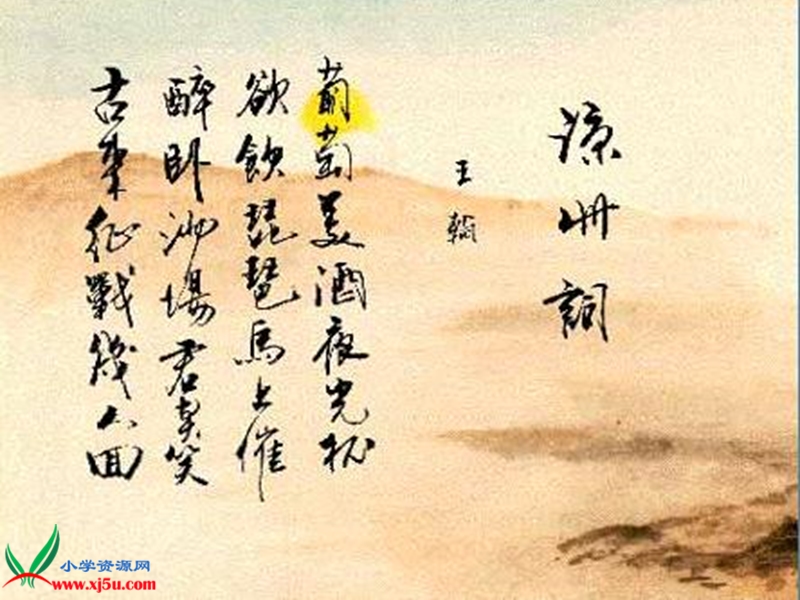 涼州詞
王翰
葡萄美酒夜光杯
欲飲琵琶馬上催
醉卧沙場君莫笑
古來征戰幾人回
小学资源网
www.xj5u.com